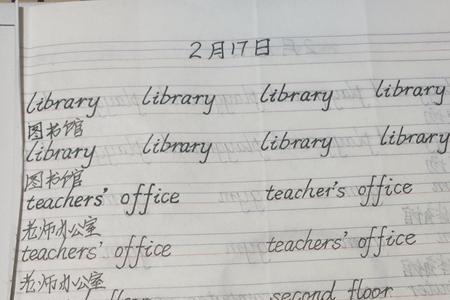 2月17日
library library library library
图书馆
library library library library
图书馆
teachers' office teacher's office
老师办公室
teachers' office teachers' office
老师办公室
floor second floor